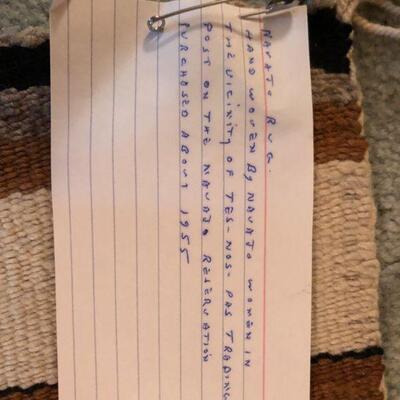 NAVAJO RUG.
HAND WOVEN By NAVAJO WOMEN IN
THE VICINITY OF TES-NOS-PAS TRADING
POST ON THE NAVAJO RESERVATION
PURCHASED ABOUT 1955